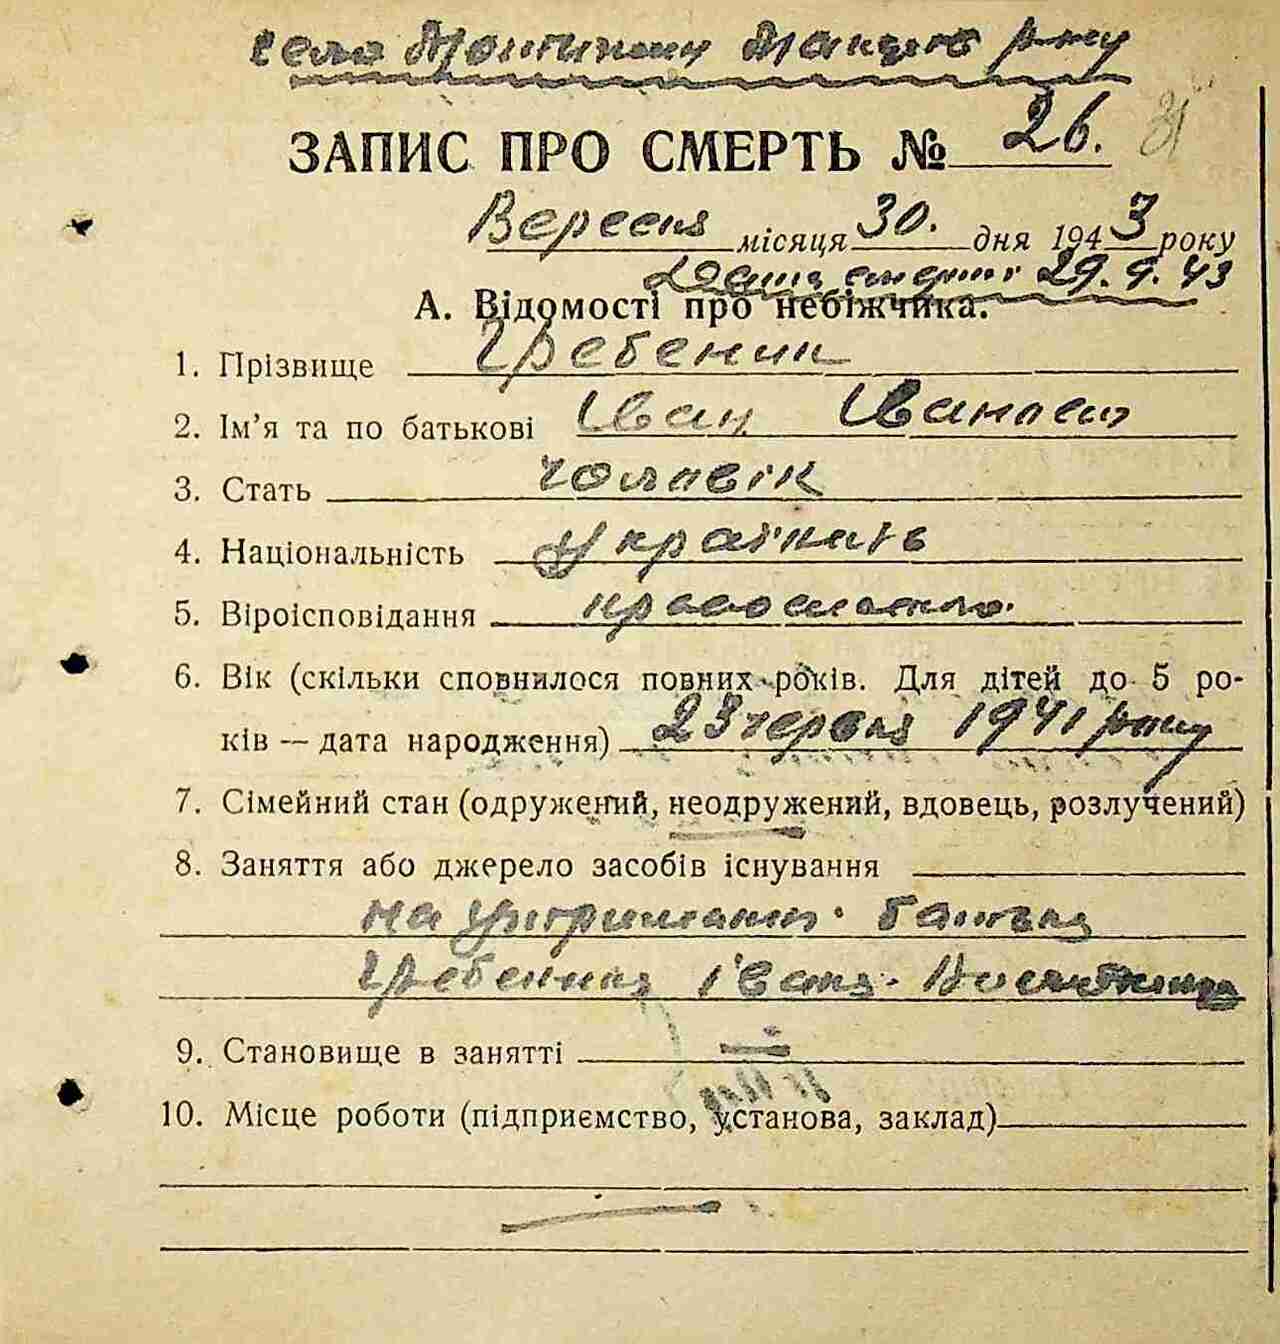 село
ЗАПИС ПРО СМЕРТЬ № 26. 31
Вересня місяця 30. дня 1943 року
Дата смерти 29.9.43
А. Відомості про небіжчика.
1. Прізвище Гребеник
2. Ім'я та по батькові Іван Іванович
3. Стать чоловік
4. Національність Українець
5. Віроісповідання
6. Вік (скільки сповнилося повних років. Для дітей до 5 ро-
ків — дата народження) 23 червня 1941 року
7. Сімейний стан (одружений, неодружений, вдовець, розлучений)
8. Заняття або джерело засобів існування
на утриманні батька
Гребеника Івана
9. Становище в занятті —
10. Місце роботи (підприємство, установа, заклад)
—